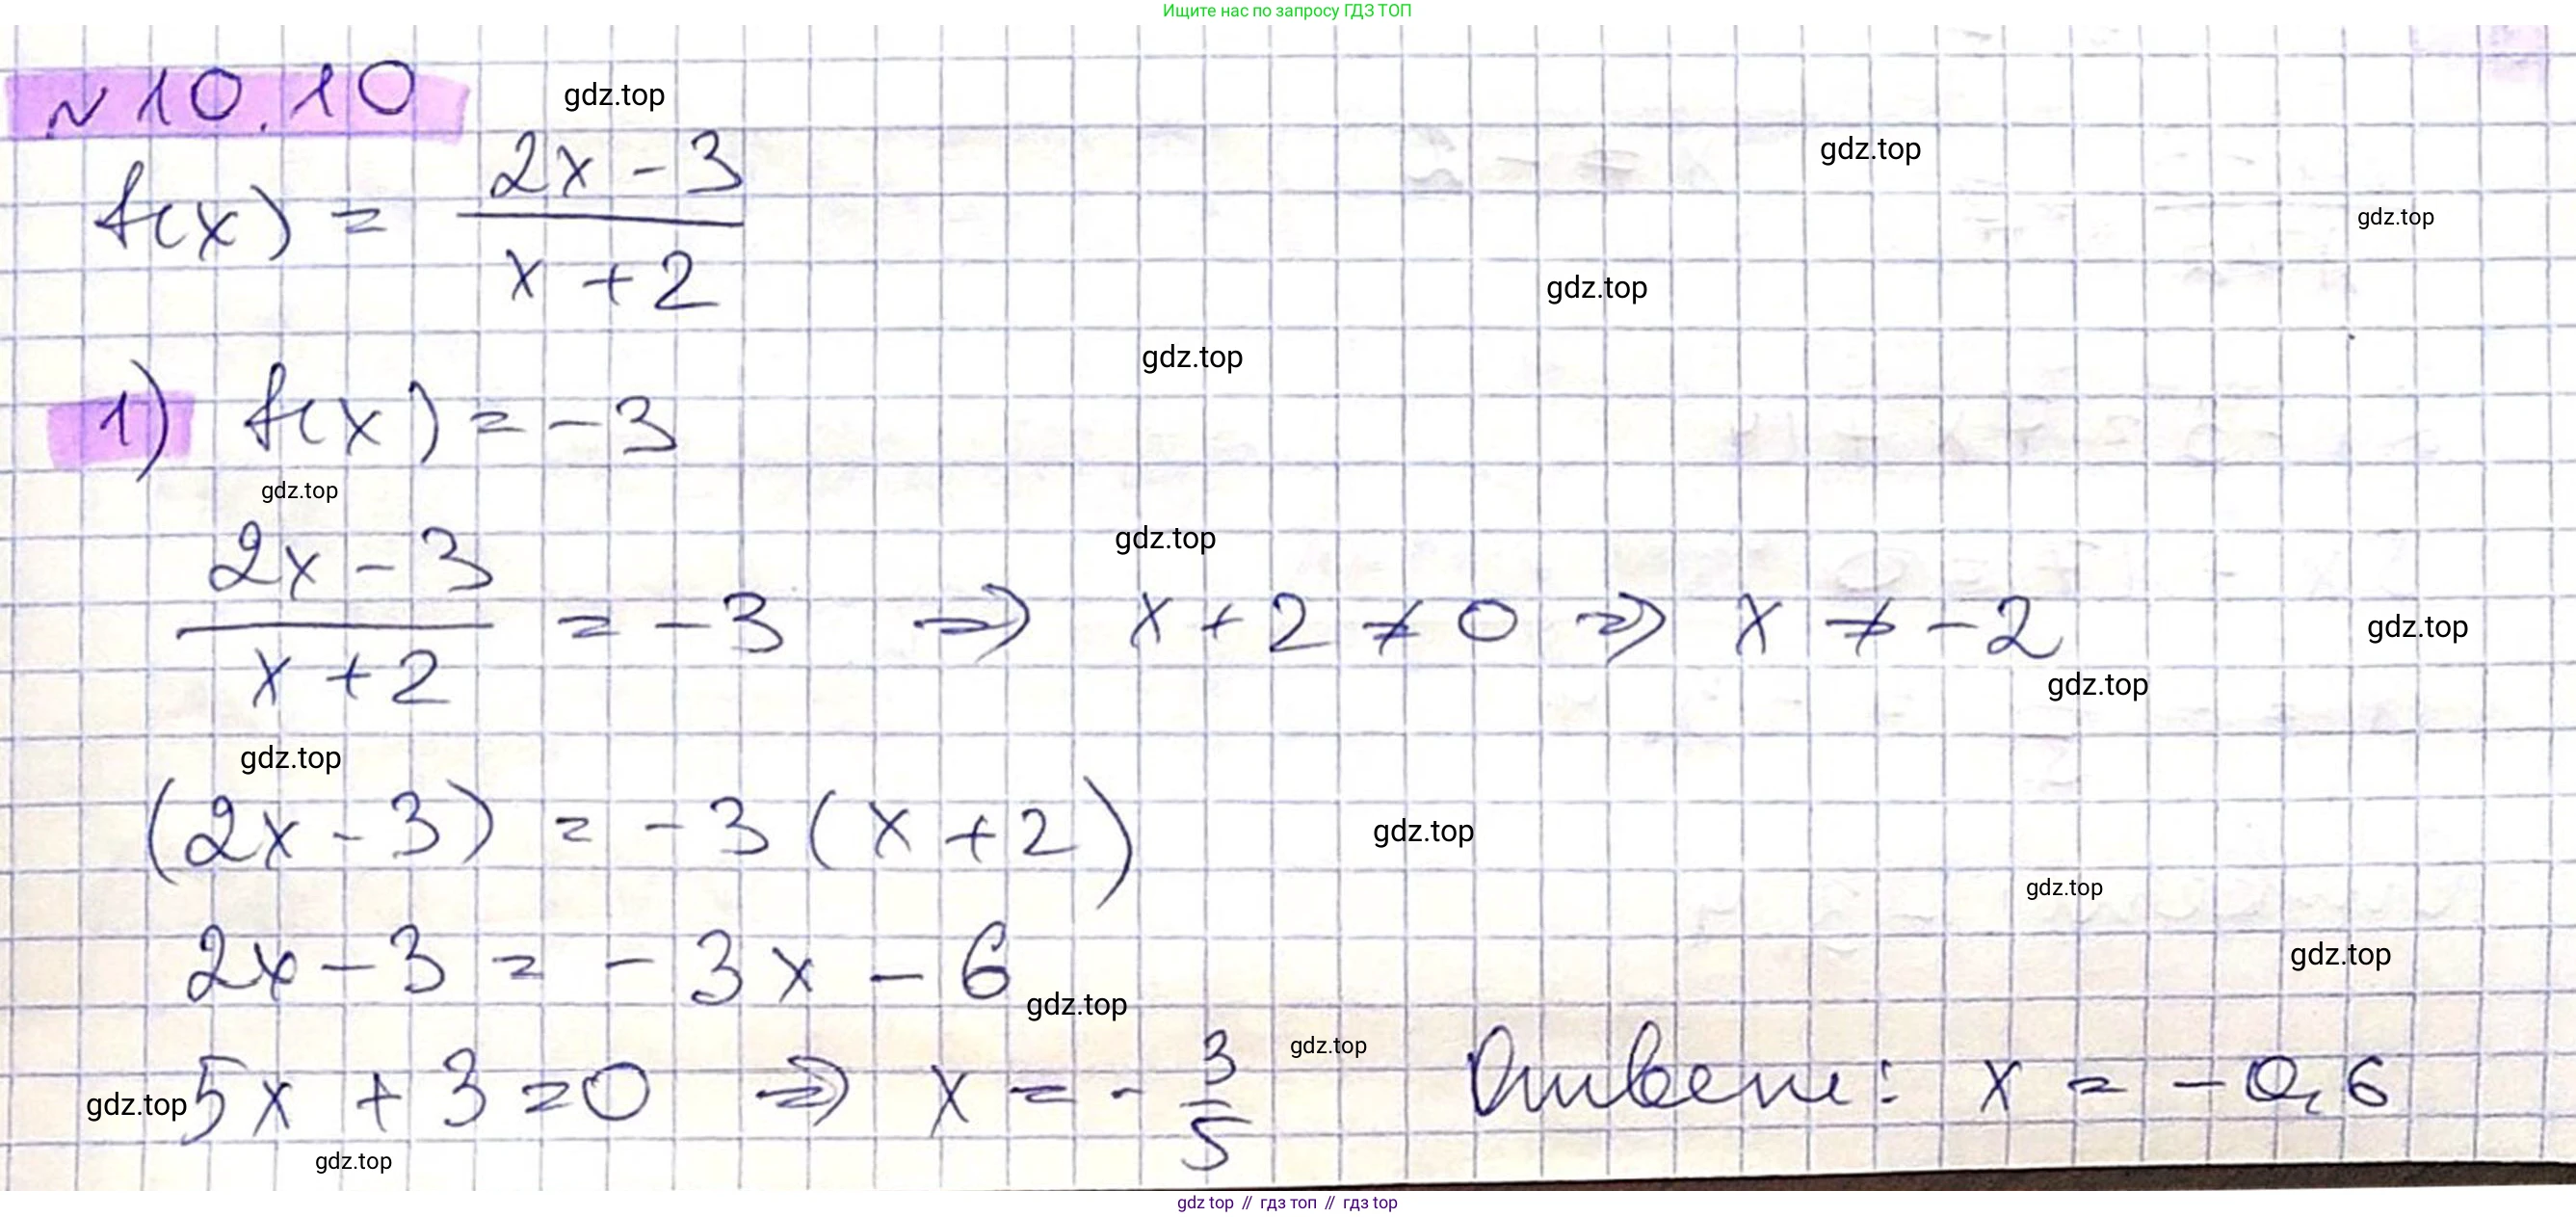 Ищите нас по запросу ГДЗ ТОП
№ 10.10
gdz.top
f(x) = (2x - 3)/(x + 2)
gdz.top
gdz.top
gdz.top
gdz.top
1) f(x) = -3
gdz.top
gdz.top
(2x - 3)/(x + 2) = -3 ⇒ x + 2 ≠ 0 ⇒ x ≠ -2
gdz.top
gdz.top
gdz.top
(2x - 3) = -3 (x + 2)
gdz.top
gdz.top
2x - 3 = -3x - 6
gdz.top
gdz.top
gdz.top
gdz.top
5x + 3 = 0 ⇒ x = - 3/5 Ответ: x = -0,6
gdz.top
gdz top // гдз топ // гдз top